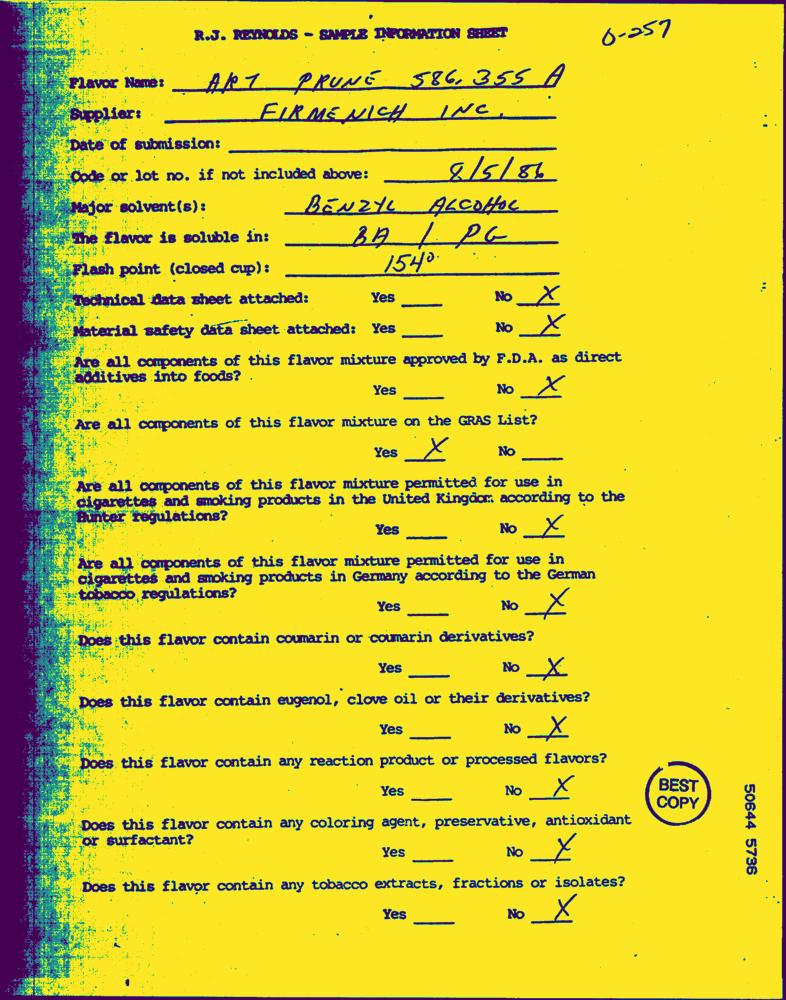 R.J. REYNOLDS - SAMPLE INFORMATION SHEET
0-257
Flavor Name: ART PRUNE 586,355 A
Supplier: FIRMENICH INC.
Date of submission:
Code or lot no. if not included above: 8/5/86
Major solvent(s): BENZYL ALCOHOL
The flavor is soluble in: BA / PG
Flash point (closed cup): 154°
Technical data sheet attached: Yes ____ No X
Material safety data sheet attached: Yes ____ No X
Are all components of this flavor mixture approved by F.D.A. as direct
additives into foods?
Yes ____ No X
Are all components of this flavor mixture on the GRAS List?
Yes X No ____
Are all components of this flavor mixture permitted for use in
cigarettes and smoking products in the United Kingdom according to the
Hunter regulations?
Yes ____ No X
Are all components of this flavor mixture permitted for use in
cigarettes and smoking products in Germany according to the German
tobacco regulations?
Yes ____ No X
Does this flavor contain coumarin or coumarin derivatives?
Yes ____ No X
Does this flavor contain eugenol, clove oil or their derivatives?
Yes ____ No X
Does this flavor contain any reaction product or processed flavors?
Yes ____ No X
BEST
COPY
50644 5736
Does this flavor contain any coloring agent, preservative, antioxidant
or surfactant?
Yes ____ No X
Does this flavor contain any tobacco extracts, fractions or isolates?
Yes ____ No X